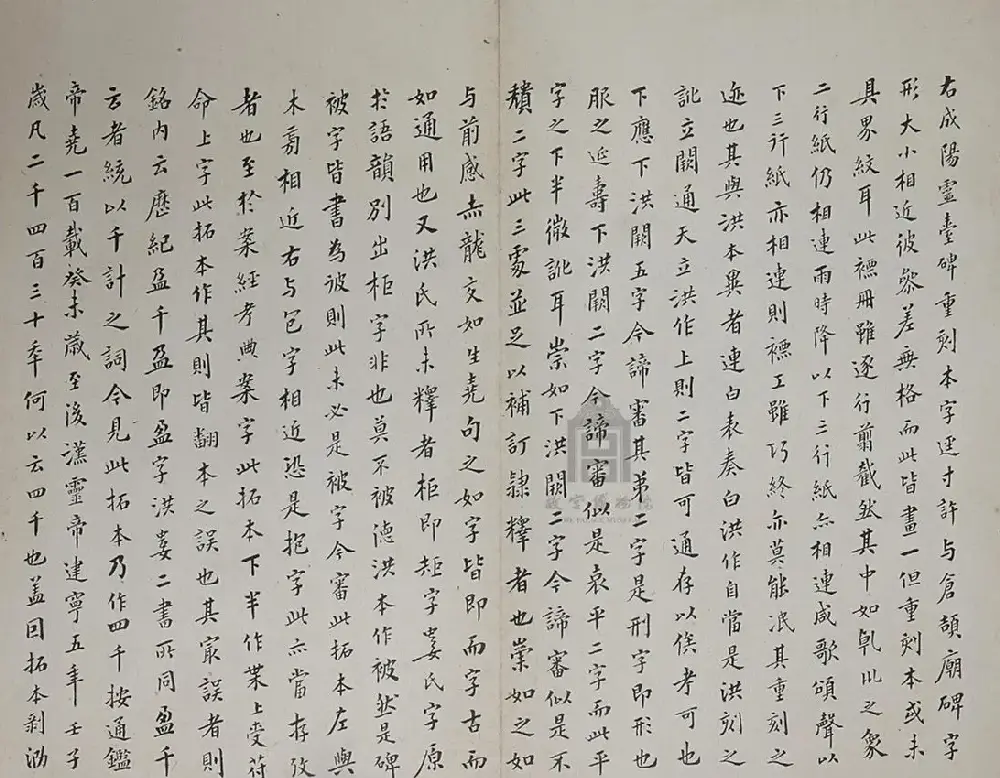 右成陽靈臺碑重刻本字逕寸許与倉頡廟碑字
形大小相近彼參差無格而此皆畫一但重刻本或未
具界紋耳此褾冊雖逐行剪截然其中如乹㘴之象
二行紙仍相連雨時降以下三行紙亦相連咸歌頌聲以
下三行紙亦相連則褾工雖巧終亦莫能泯其重刻之
迹也其與洪本異者連白表奏白洪作自當是洪刻之
訛立闕通天立洪作上則二字皆可通存以俟考可也
下應下洪闕五字今諦審其第二字是刑字即形也
服之延壽下洪闕二字今諦審似是袁平二字而此平
字之下半微訛耳崇如下洪闕二字今諦審似是不
穨二字此三處並足以補訂隸釋者也崇如之如
与前感赤龍交如生堯句之如字皆即而字古而
如通用也又洪氏所未釋者柜即矩字婁氏字原
於語韻別出柜字非也莫不被德洪本作被然是碑
被字皆書為彼則此未必是被字今審此拓本左與
木旁相近右与包字相近恐是抱字此亦當存攷
者也至於案經考典案字此拓本下半作業上受符
命上字此拓本作其則皆翻本之誤也其最誤者則
銘内云歷紀盈千盈即盈字洪婁二書所同盈千
云者統以千計之詞今見此拓本乃作四千按通鑑
帝堯一百載癸未歲至後漢靈帝建寧五年壬子
歲凡二千四百三十年何以云四千也盖因拓本剥泐
故宮博物院
THE PALACE MUSEUM